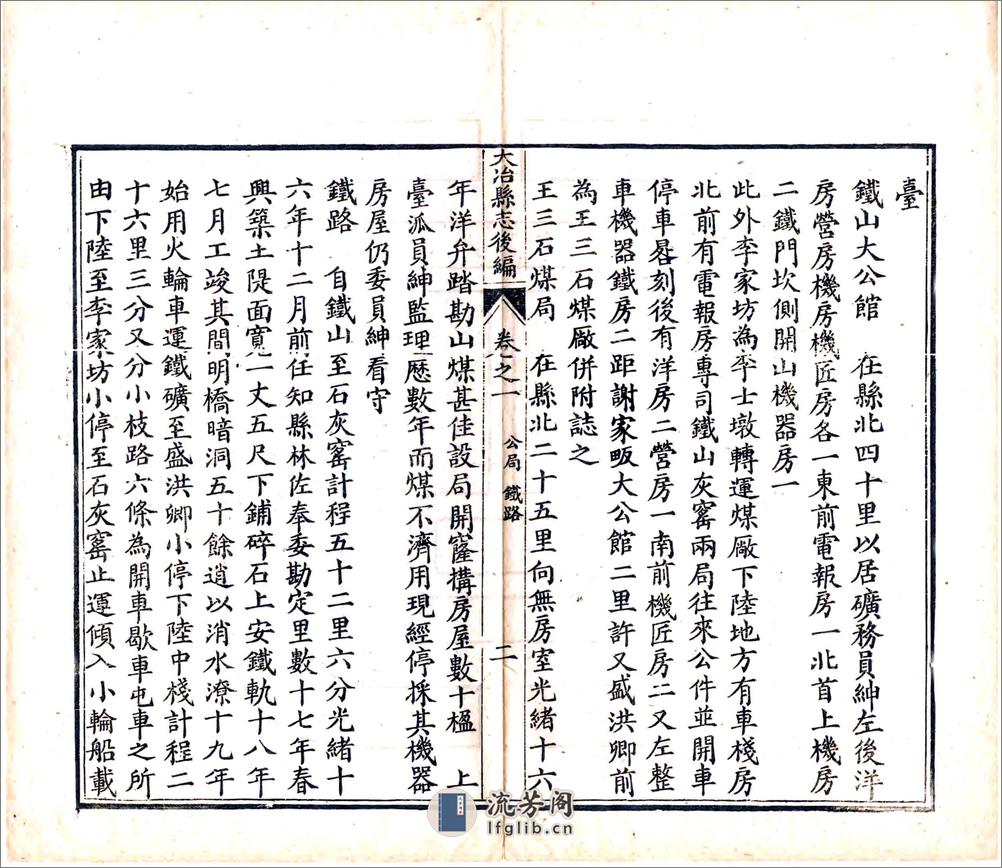 臺
鐵山大公館　在縣北四十里以居礦務員紳左後洋
房營房機房機匠房各一東前電報房一北首上機房
二鐵門坎側開山機器房一
此外李家坊為李士墩轉運煤厰下陸地方有車棧房
北前有電報房專司鐵山灰窰兩局往來公件並開車
停車晷刻後有洋房二營房一南前機匠房二又左整
車機器鐵房二距謝家畈大公館二里許又盛洪卿前
為王三石煤厰併附誌之
王三石煤局　在縣北二十五里向無房室光緒十六
大冶縣志後編　卷之一　公局　鐵路　二
年洋弁踏勘山煤甚佳設局開窿構房屋數十楹　上
臺派員紳監理歷數年而煤不濟用現經停採其機器
房屋仍委員紳看守
鐵路　自鐵山至石灰窰計程五十二里六分光緒十
六年十二月前任知縣林佐奉委勘定里數十七年春
興築土隄面寬一丈五尺下鋪碎石上安鐵軌十八年
七月工竣其間明橋暗洞五十餘道以消水潦十九年
始用火輪車運鐵礦至盛洪卿小停下陸中棧計程二
十六里三分又分小枝路六條為開車歇車屯車之所
由下陸至李家坊小停至石灰窰止運傾入小輪船載
流芳阁
lfglib.cn